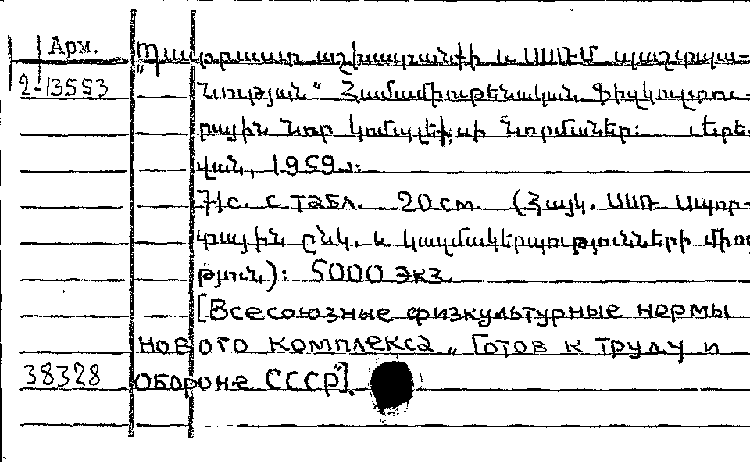 Арм.
2-13553
„Պատրաստ աշխատանքի և ՍՍՌՄ պաշտպա-
նության“ Համամիութենական ֆիզկուլտու-
րային նոր կոմպլեքսի նորմաներ: Երե-
վան, 1959թ:
71с. с табл. 20 см. (Հայկ. ՍՍՌ Սպոր-
տային ընկ. և կազմակերպությունների միու
թյուն): 5000 экз.
[Всесоюзные физкультурные нормы
нового комплекса „Готов к труду и
38328 обороне СССР"].